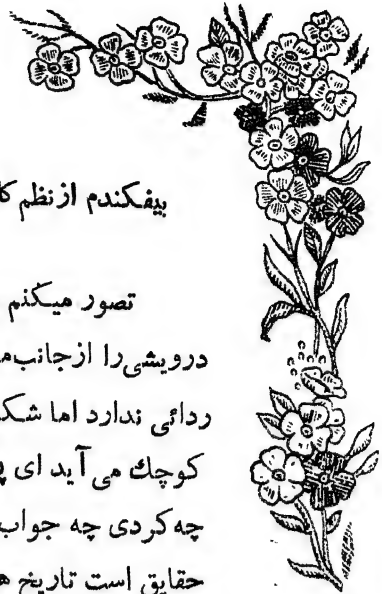 بیفکندم از نظم
تصور میکنم
درویشی را از جانب
ردائی ندارد اما
کوچك می آید ای
چه کردی چه جواب
حقایق است تاریخ